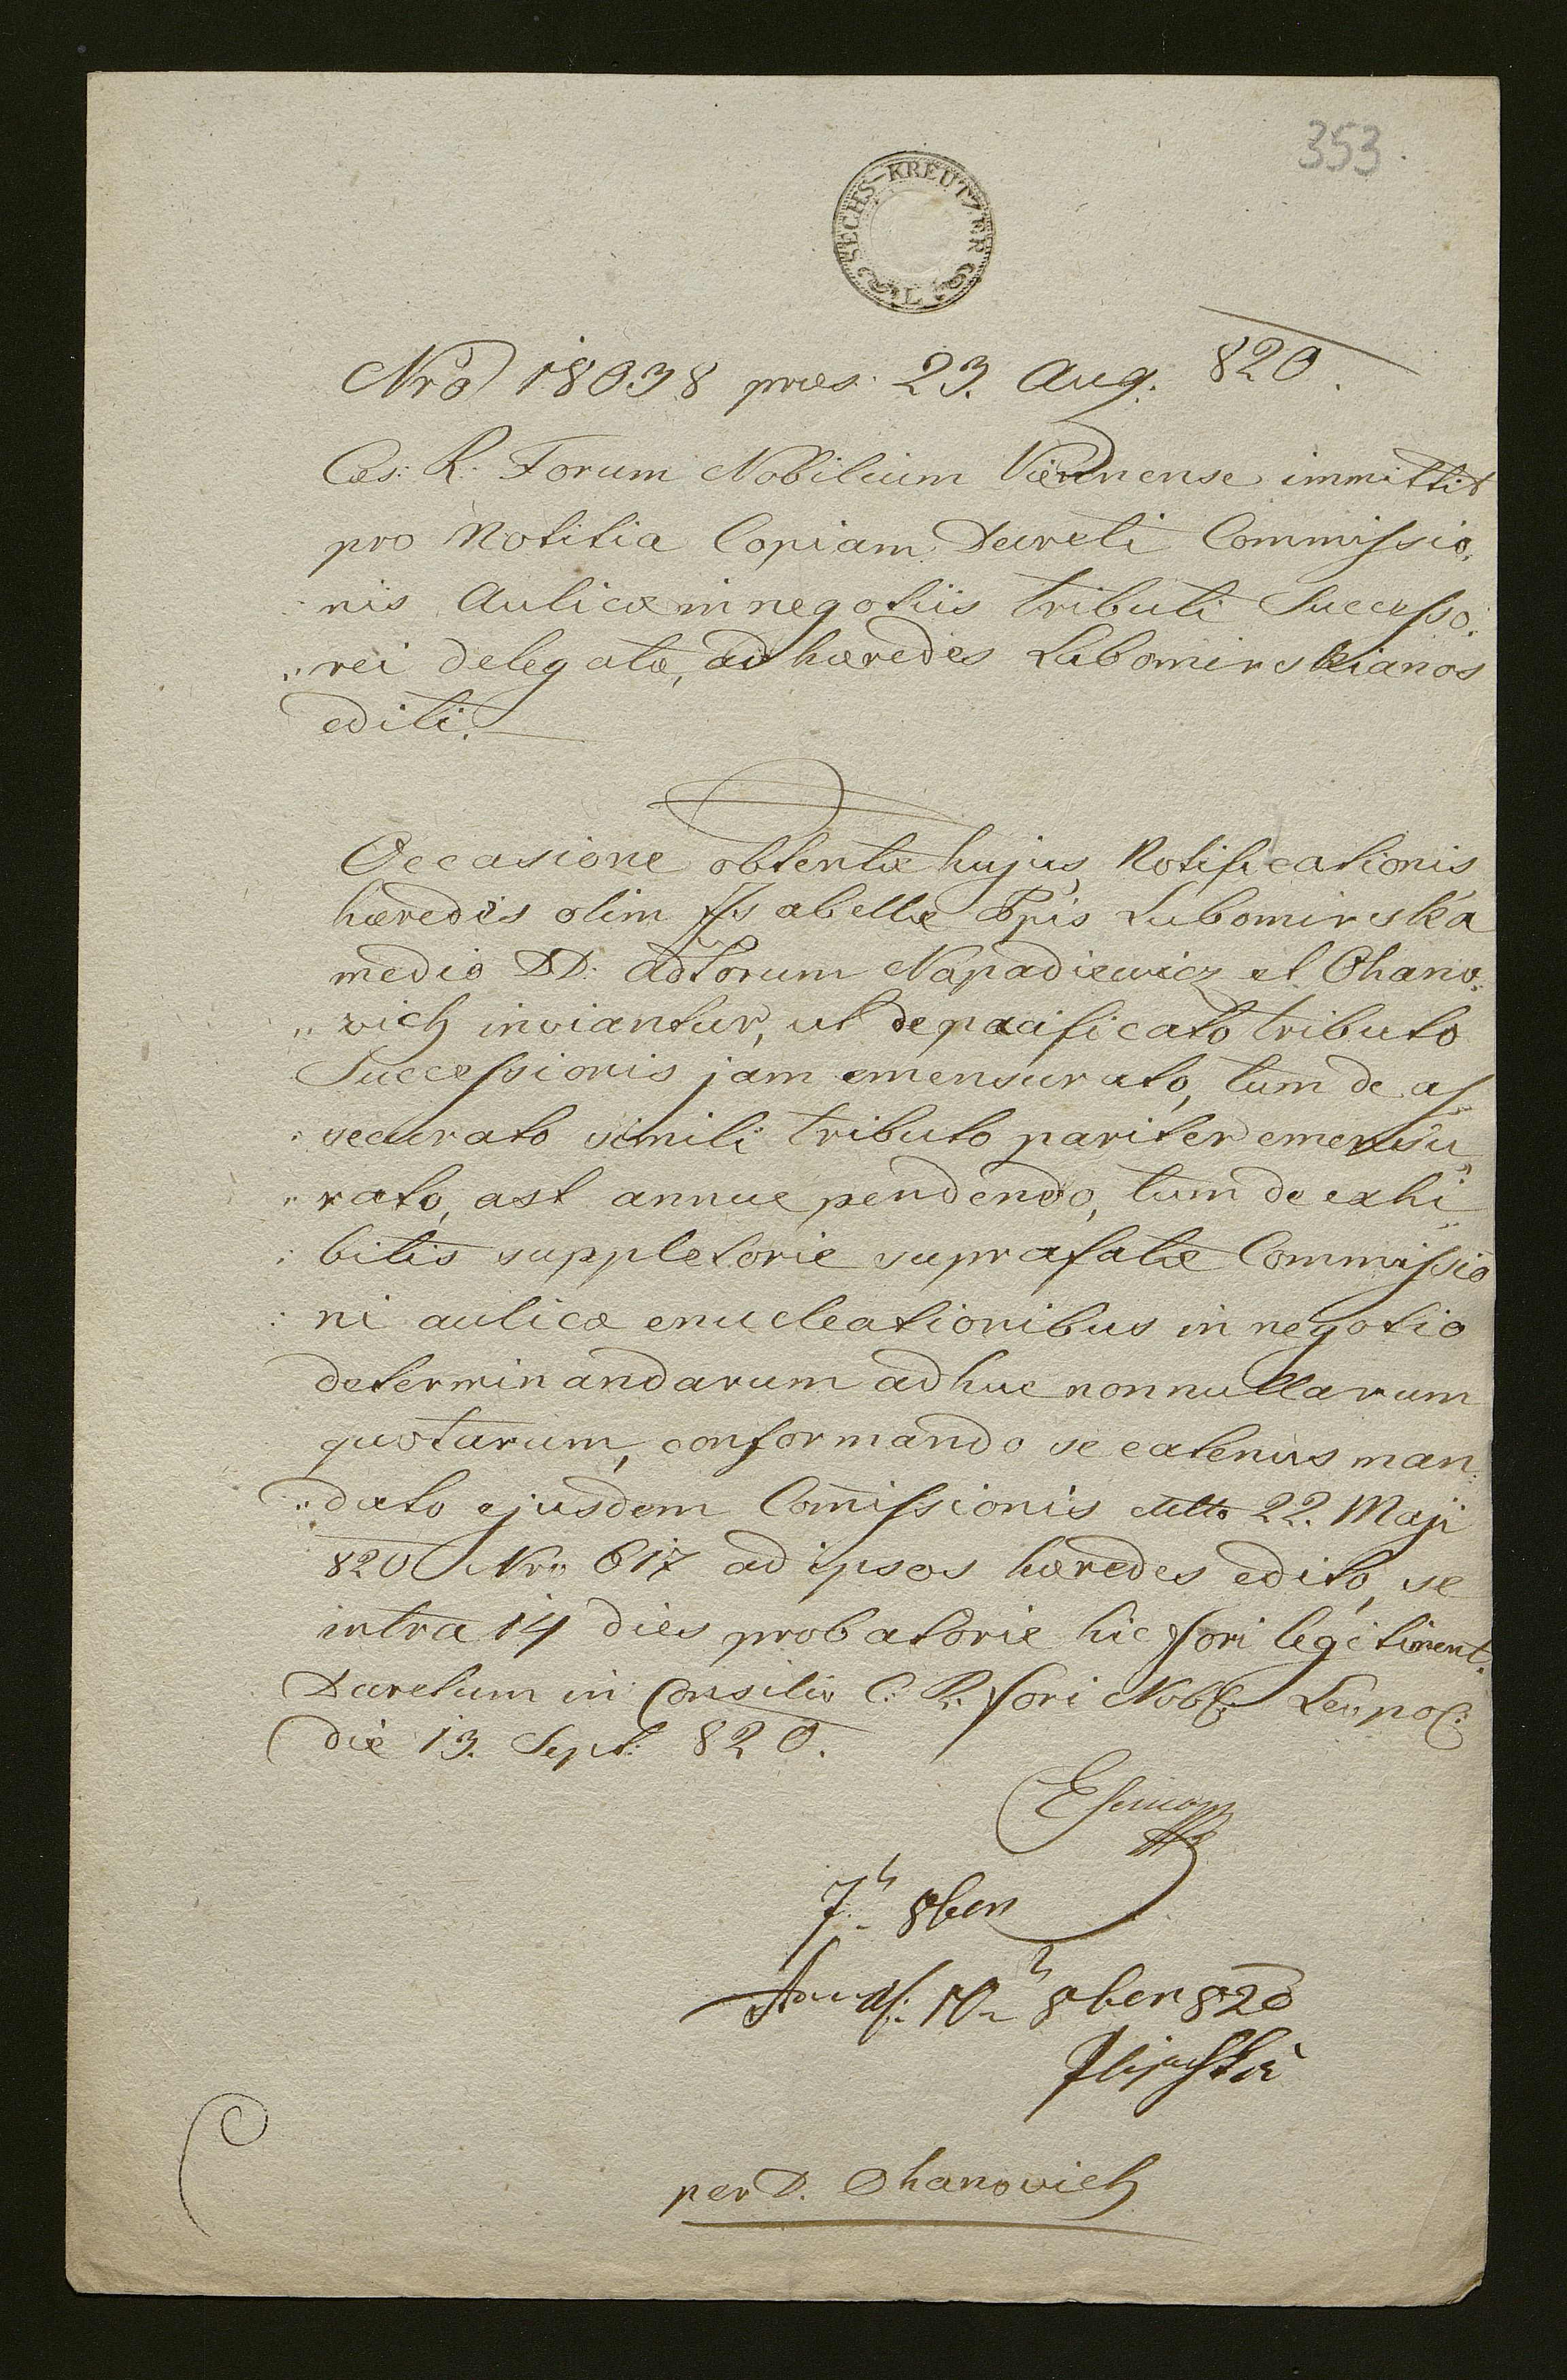 353
SECHS-KREUTZER
L
Nrō 18038 præs. 23. Aug. 820.
Cæs: R. Forum Nobilium Viennense immittit
pro Notitia Copiam Decreti Commissio„
„nis Aulicæ in negotiis tributi Successo„
„rei delegatæ, ad hæredes Lubomirskianos
editi.
Occasione obtentæ hujus Notificationis
hæredes olim Isabellæ Ppis Lubomirska
medio DD. Adtorum Napadiewicz et Ohano„
„wich inviantur, ut de pacificato tributo
Successionis jam emensurato, tum de as„
„securato simili tributo pariter emensu„
„rato, ast annue pendendo, tum de exhi„
„bitis suppletorie suprafatæ Commissio
„ni aulicæ enucleationibus in negotio
determinandarum adhuc nonnullarum
quotarum, conformando se eatenus man„
„dato ejusdem Com̄issionis ddto 22. Maji
820 Nro 617 ad ipsos hæredes edito, se
intra 14 dies probatorie hic fori legitiment.
Decretum in Consilio C. R. fori Nobil: Leopol:
die 13. Sept. 820.
7. 8ber
10 8ber 820
per D. Ohanovich